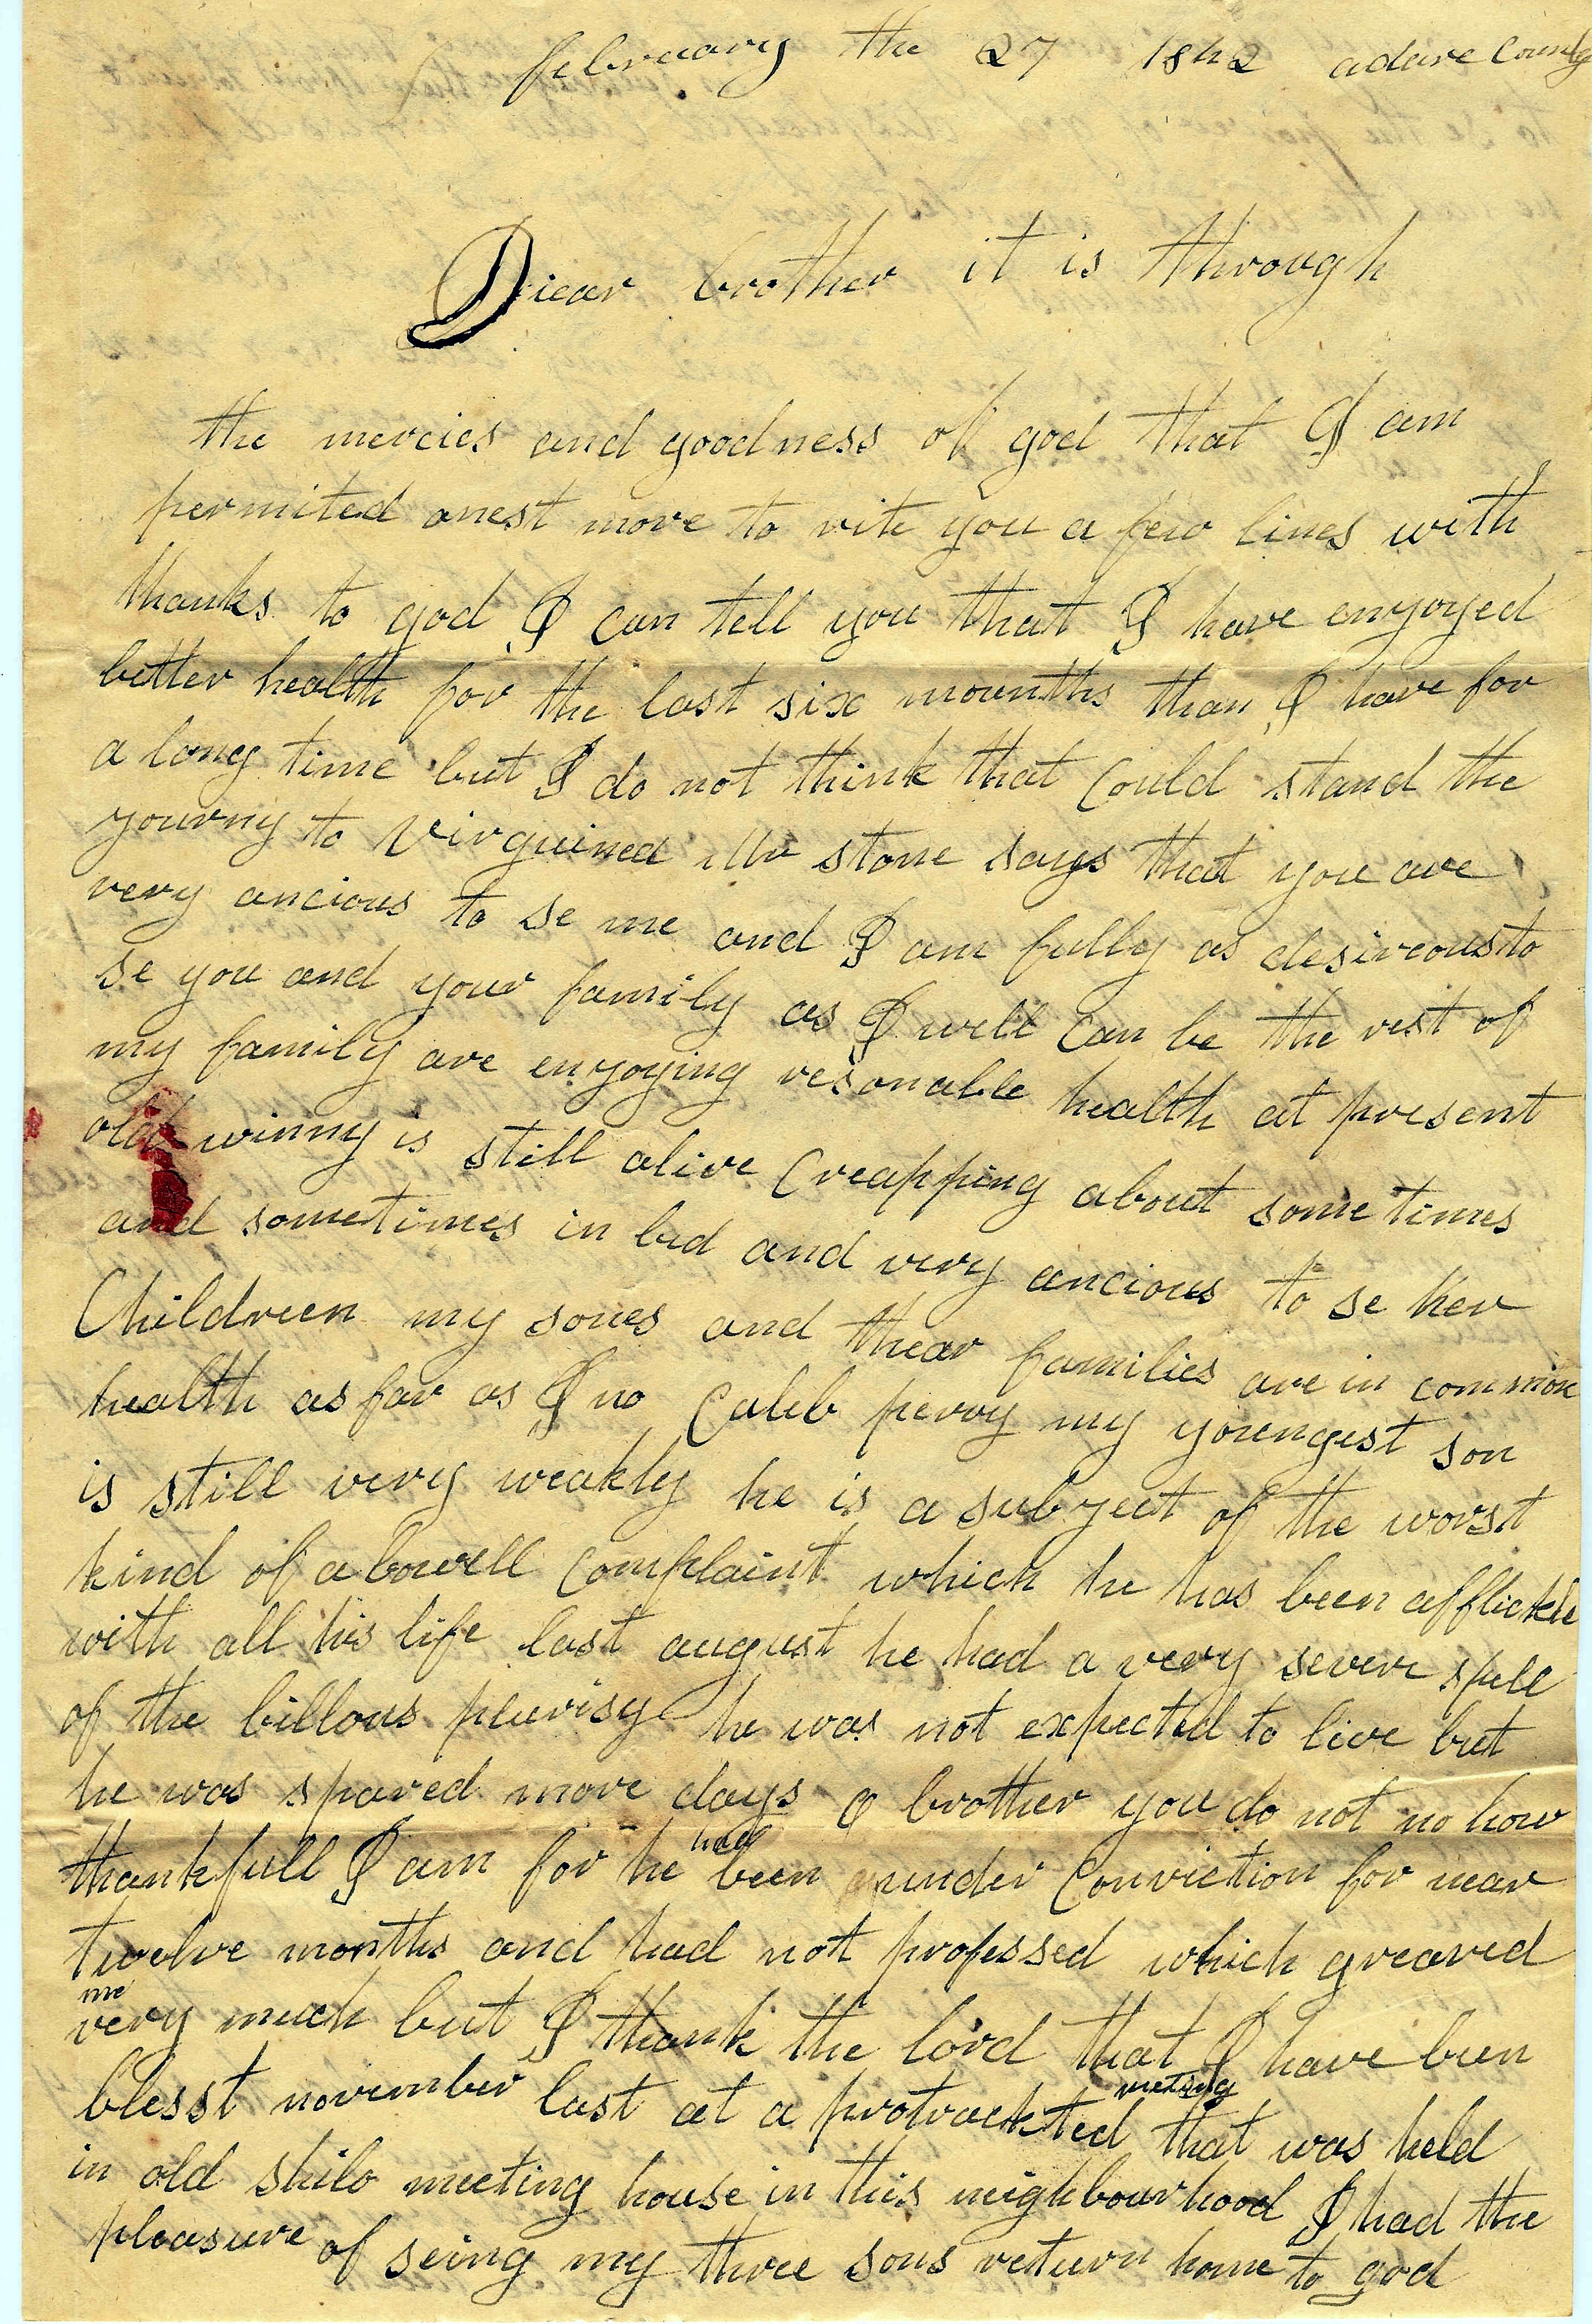 february the 27 1842 adare County
Diear brother it is through
the mercies and goodness of god that I am
permited onest more to rite you a few lines with
thanks to god I can tell you that I have enyoyed
better health for the last six mounths than I have for
a long time but I do not think that Could stand the
yourny to Virguinea Mr stone says that you are
very ancious to se me and I am fully as desireous to
se you and your family as I well can be the rest of
my family are enyoying resonable health at present
old winny is still alive Creapping about some times
and sometimes in bed and very ancious to se her
Childreen my sones and thear families are in common
health as far as I no Caleb perry my youngest son
is still very weakly he is a subyect of the worst
kind of a bowell Complaint which he has been afflickte
with all his life last august he had a very severe spell
of the billous plurisy he was not expected to live but
he was spared more days o brother you do not no how
thankfull I am for he had been under Conviction for near
twelve months and had not professed which greaved
me very much but I thank the lord that I have been
blesst november last at a protrackted meeting that was held
in old shilo meeting house in this neighbourhood I had the
pleasure of seing my three sons return home to god